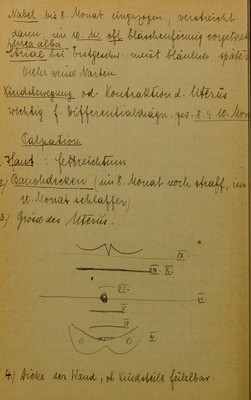 Nabel bis 8. Monat eingezogen, verstreicht
dann, im 10. M. oft bläschenförmig vorgetrieben
Linea alba
Striae bei Erstgeschw. meist bläulich später
weisse Narben.
Kindsbewegung od. Kontraktion d. Uterus
wichtig f. Differentialdiagn. zw. 8. & 10. Mon
Palpation
1.) Haut: Fettreichtum
2.) Bauchdecken (im 8. Monat noch straff, im
10. Monat schlaffer)
3.) Grösse des Uterus.
IX.
VIII. X.
VI.
V.
IV.
4.) Dicke der Wand, ob Kindsteile fühlbar.